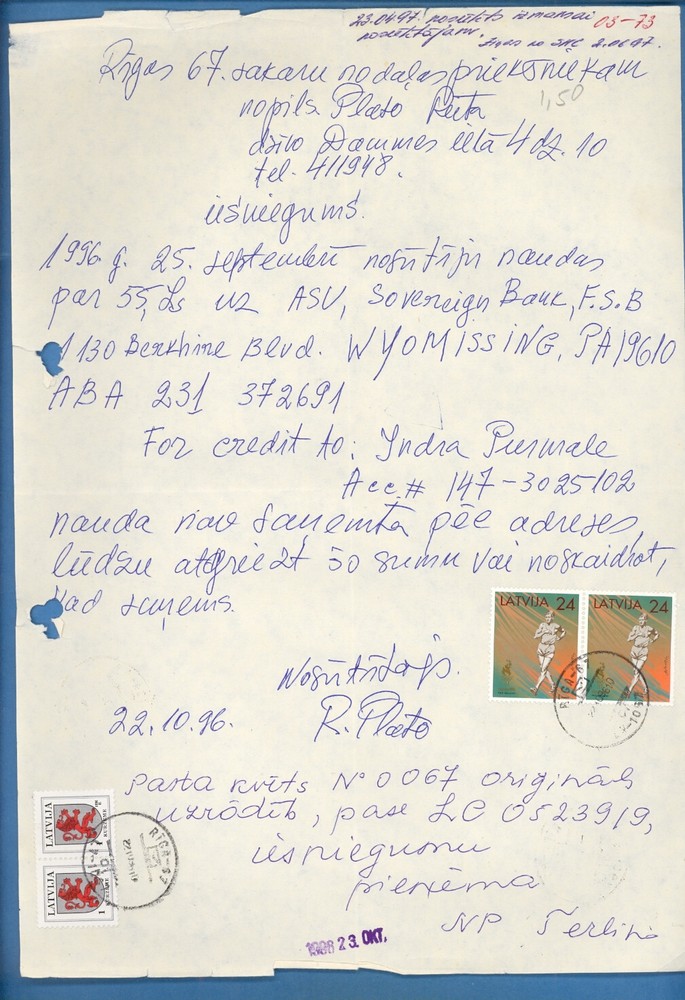 23.04.97. nosūtīts izmaksai
nosūtītājam.
03-73
Ziņas no SNC 2.06.97.
Rīgas 67. sakaru nodaļas priekšniekam
1,50
no pils. Plato Rita
dzīvo Dammes ielā 4 dz. 10
tel. 411948.
iesniegums.
1996. g. 25. septembrī nosūtīju naudas
par 55, Ls uz ASV, Sovereign Bank, F.S.B
1130 Berkhire Blvd. WYOMISSING, PA19610
ABA 231 372691
For credit to: Indra Purmale
Acc # 147-3025102
nauda nav saņemta pēc adreses,
lūdzu atgriezt šo summu vai noskaidrot,
kad saņems.
Nosūtītājs.
22.10.96. R. Plato
LATVIJA 24 LATVIJA 24
RIGA-67
Pasta kvīts Nº 0067 oriģināls
uzrādīts, pase LC 0523919,
iesniegumu
pieņēma
NP
LATVIJA
LATVIJA 1
RIGA-67
1996 23. OKT.